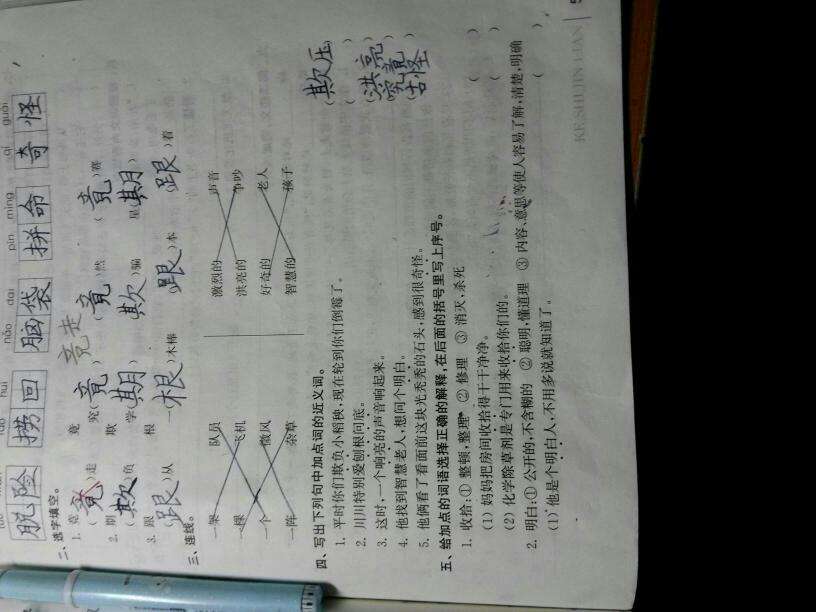 huí nǎo dai pīn mìng qí guài
脱险 捞回 脑袋 拼命 奇怪
二、选字填空。
竞走
1. 竞 竟
(竟)走 究(竟) (竟)然 (竟)赛
2. 期 欺
(欺)负 学(期) (欺)骗 星(期)
3. 跟 根
(跟)从 一(根)木棒 (跟)本 (跟)着
三、连线。
一架 队员 激烈的 声音
一棵 飞机 洪亮的 争吵
一个 微风 好奇的 老人
一阵 杂草 智慧的 孩子
四、写出下列句中加点词的近义词。
1. 平时你们欺负小稻秧,现在轮到你们倒霉了。 (欺压)
2. 川川特别爱刨根问底。 ( )
3. 这时,一个响亮的声音响起来。 (洪亮)
4. 他找到智慧老人,想问个明白。 (究竟)
5. 他俩看了看面前这块光秃秃的石头,感到很奇怪。 (古怪)
五、给加点的词语选择正确的解释,在后面的括号里写上序号。
1. 收拾:① 整顿,整理 ② 修理 ③ 消灭,杀死
(1) 妈妈把房间收拾得干干净净。 ( )
(2) 化学除草剂是专门用来收拾你们的。 ( )
2. 明白:① 公开的,不含糊的 ② 聪明,懂道理 ③ 内容、意思等使人容易了解,清楚,明确
(1) 他是个明白人,不用多说就知道了。 ( )
KE SHI JIN LIAN